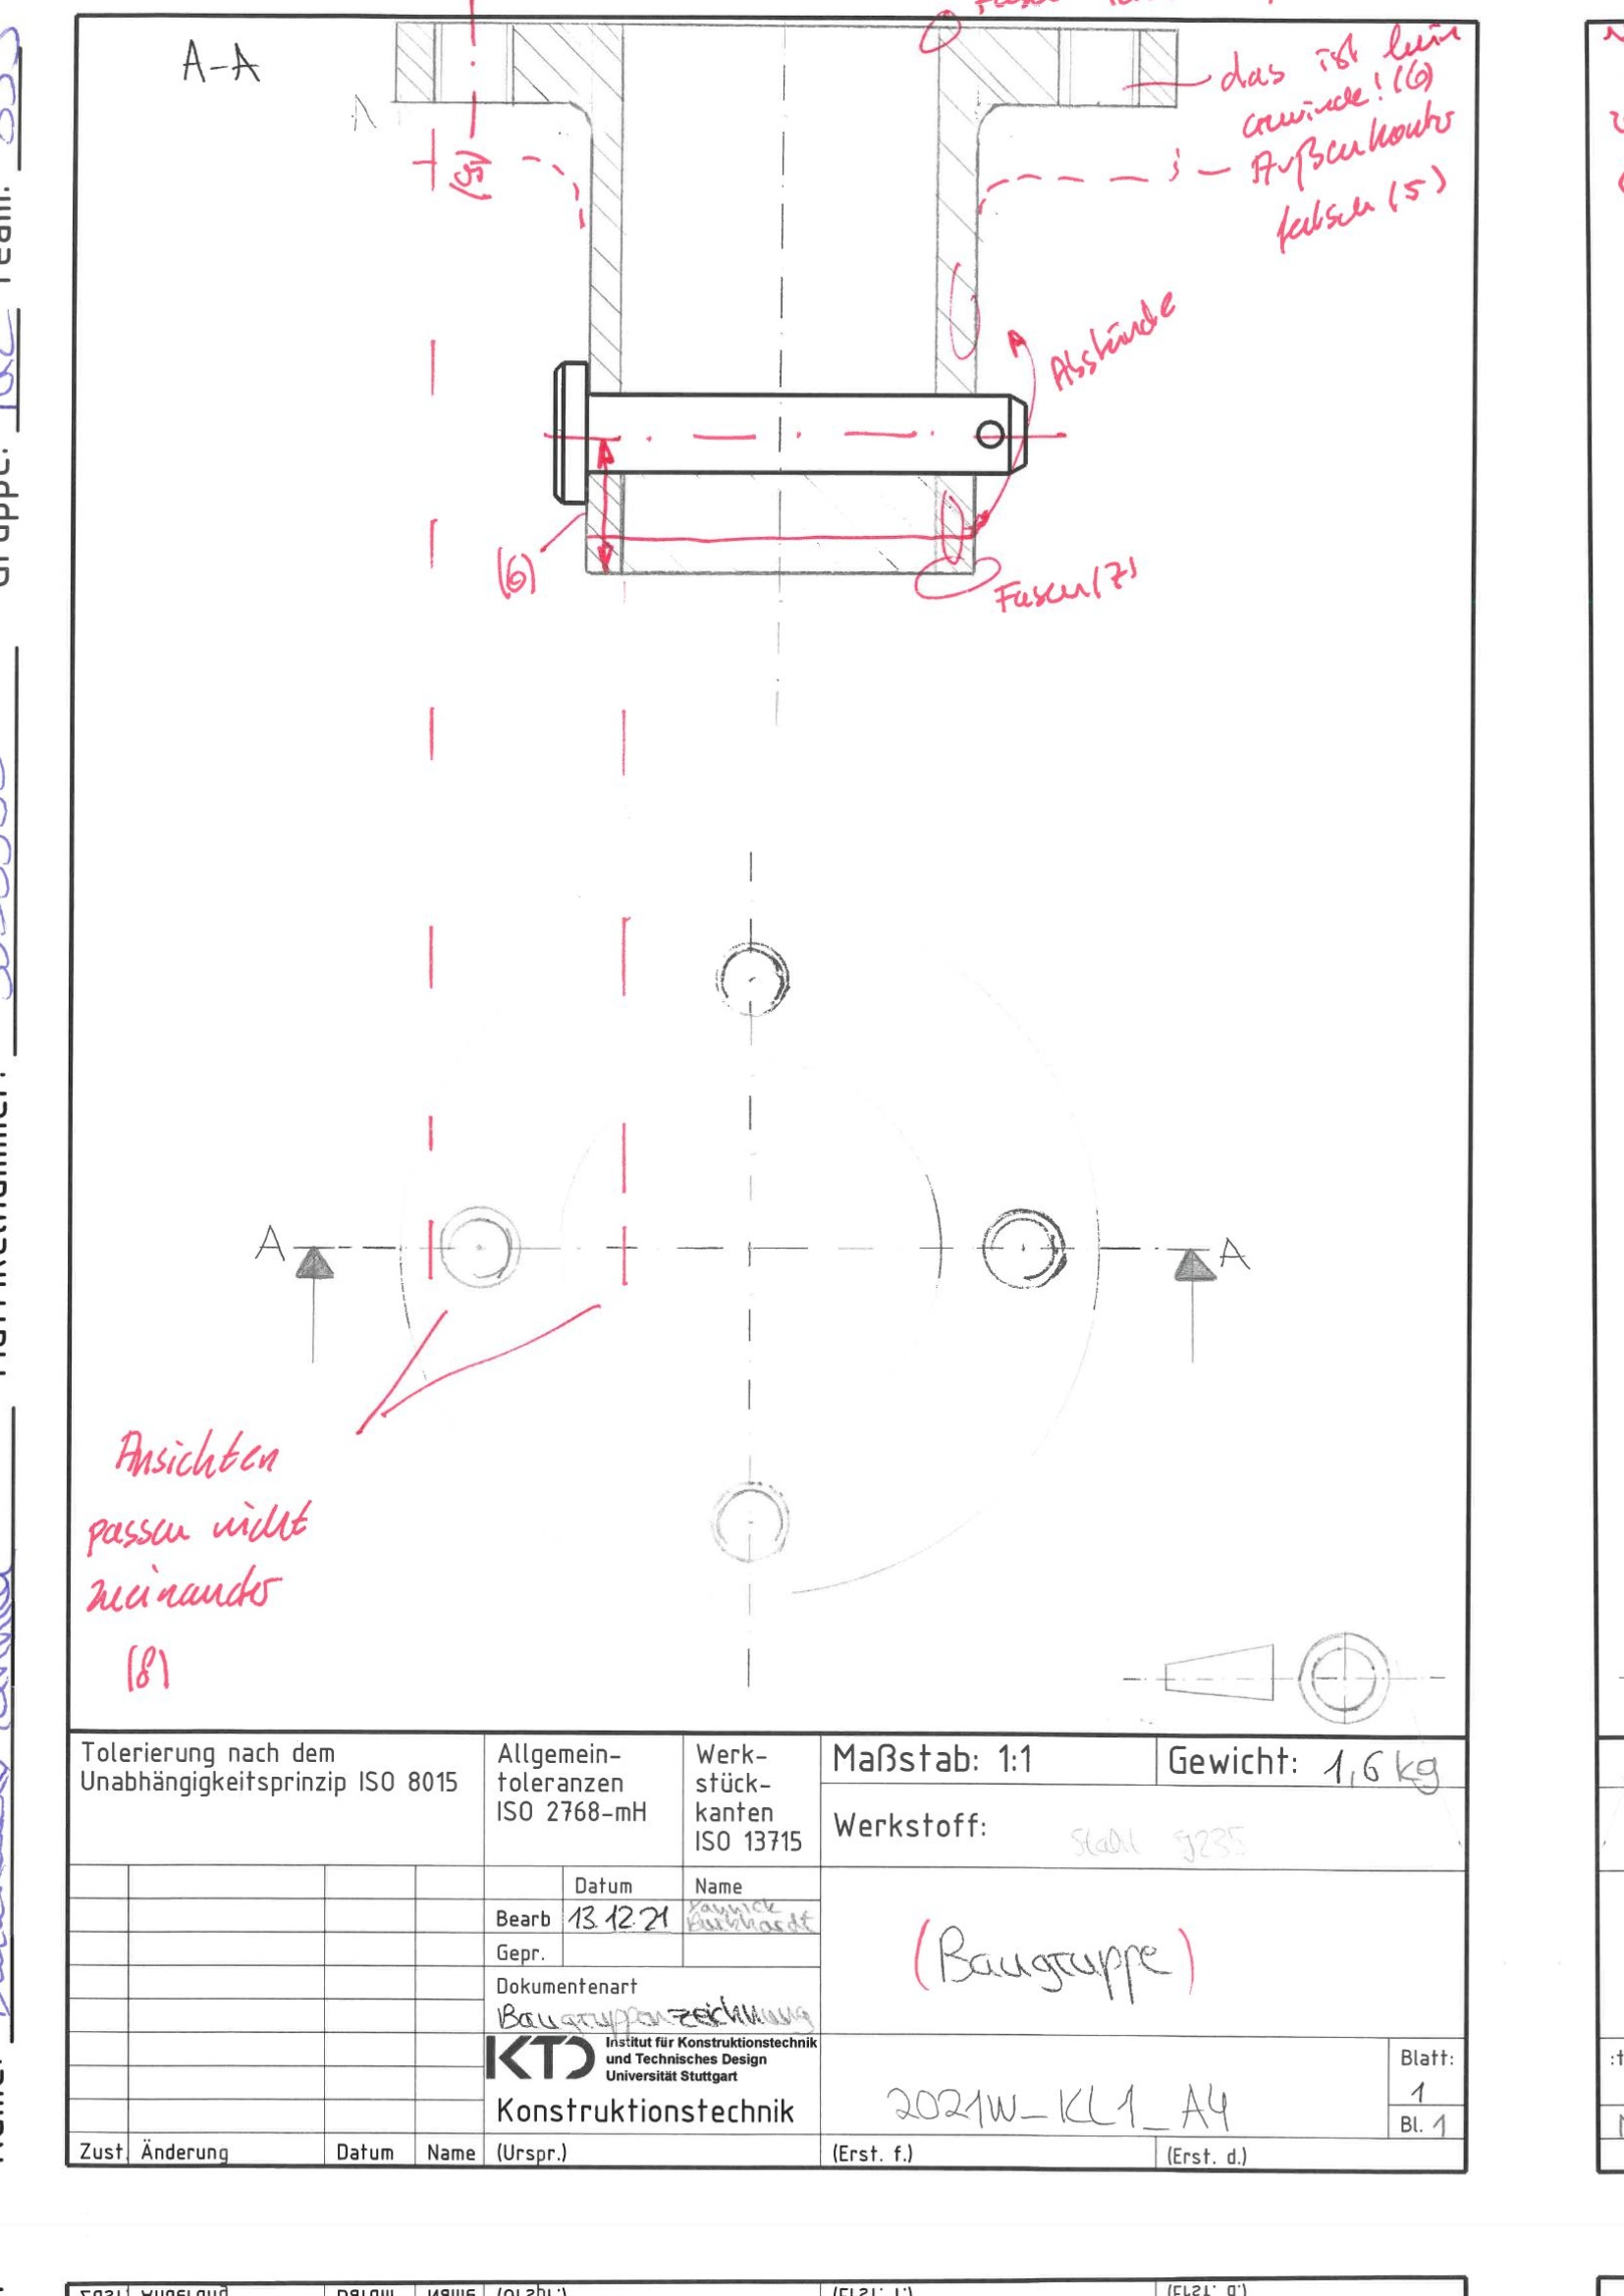 A-A
das ist kein
Gewinde! (6)
Außenkontur
falsch (5)
(5)
Abstände
(6)
Fasen (7)
A
A
Ansichten
passen nicht
zueinander
(8)
Tolerierung nach dem
Unabhängigkeitsprinzip ISO 8015
Allgemein-
toleranzen
ISO 2768-mH
Werk-
stück-
kanten
ISO 13715
Maßstab: 1:1
Gewicht: 1,6 kg
Werkstoff: Stahl S235
Datum
Name
Bearb 13.12.21 Yannick
Burkhardt
Gepr.
Dokumentenart
Baugruppenzeichnung
(Baugruppe)
KTD Institut für Konstruktionstechnik
und Technisches Design
Universität Stuttgart
Konstruktionstechnik
2021W_KL1_A4
Blatt:
1
Bl. 1
Zust. Änderung Datum Name (Urspr.) (Erst. f.) (Erst. d.)